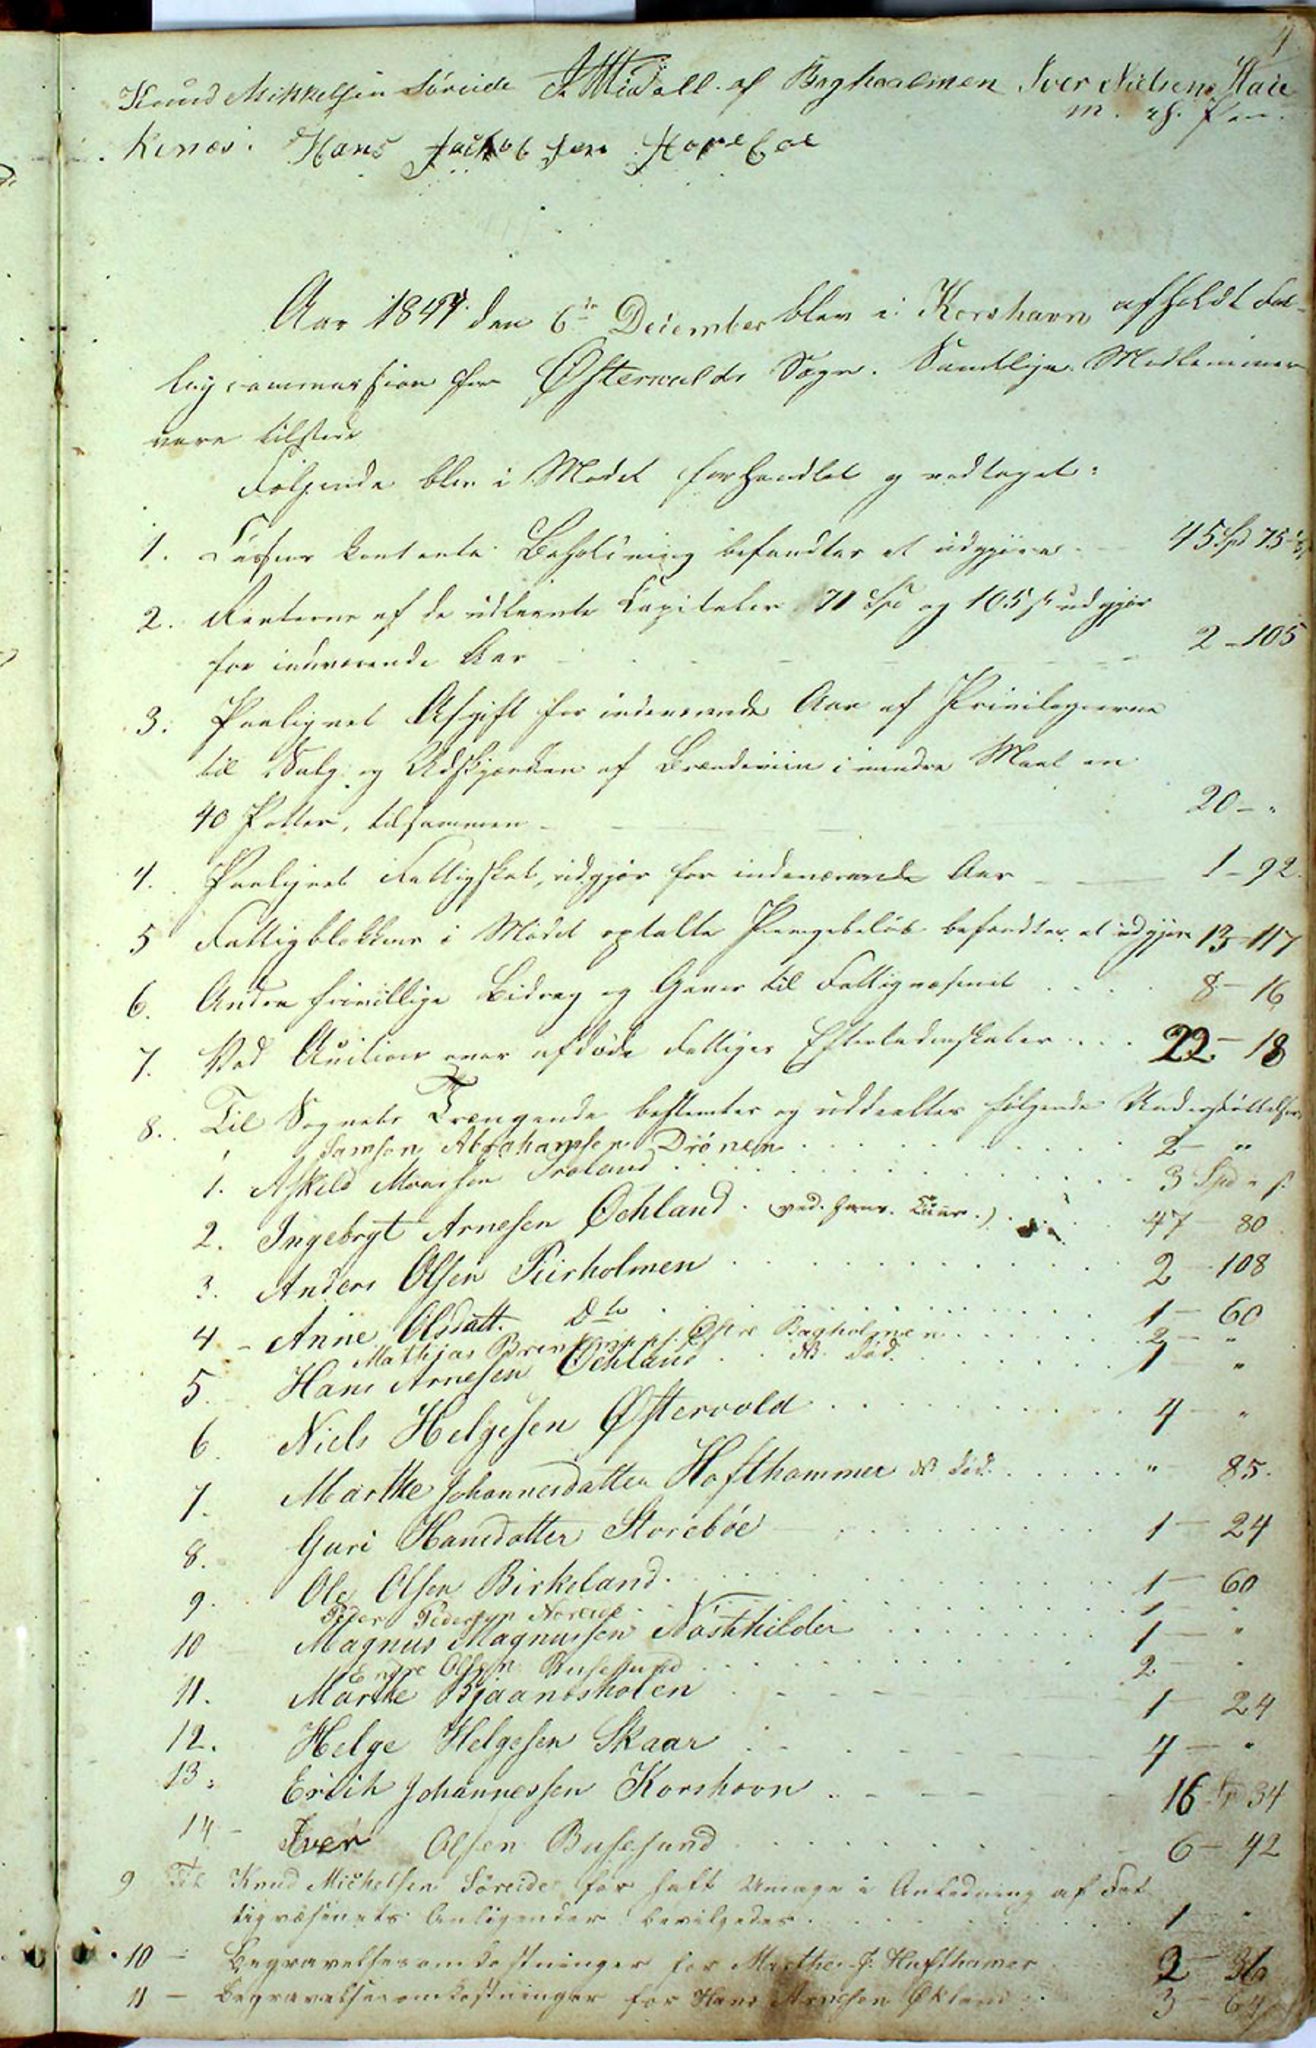 4
Knud Mikkelsen Søreide J. Midell. af Bagholmen Iver Nielsen
m. ih. Pen.
Hans Jachobsen Storebøe
Aar 1847 den 6te December blev i Korshavn afholdt Fat-
tigcommission for Østervolds Sogn. Samtlige Medlemmer
vare tilstede
Følgende blev i Mødet forhandlet og vedtaget:
1. Cassens contante Beholdning befandtes at udgjøre 45 Spd 75
2. Renterne af de udlaante Capitaler 71 Spd og 105 s udgjør
for indeværende Aar 2 - 105
3. Paalignet Afgift for indeværende Aar af Privilegierne
til Salg og Udskjænken af Brændeviin i mindre Maal en
40 Potter, tilsammen 20 - "
4. Paalignet Fattigskat, udgjør for indeværende Aar 1 - 92.
5 Fattigblokkens i Mødet optalte Pengebeløb befandtes at udgjøre 13 - 117
6. Andre frivillige Bidrag og Gaver til Fattigvæsenet 8 - 16
7. Ved Auction over afdøde Fattiges Efterladenskaber 22 - 18
8. Til Sognets Trængende bestemtes og uddeeltes følgende Understøttelser
Samson Abrahamsen Drönen 2 - "
1. Askild Monsen Troland 3 Spd " s.
2. Ingebrgt Arnesen Öchland. (ved hans Cuur.) 47 - 80
3. Anders Olsen Piirholmen 2 - 108
4 - Anne Olsdatt. Dto 1 - 60
Mathias Östre Bagholmen 2 - "
5. Hans Arnesen Öchland NB. død. 1 - "
6. Niels Helgesen Østervold 4 - "
7. Marthe Johannesdatter Hofthammer NB død. " - 85.
8. Guri Hansdatter Storebøe 1 - 24
9. Ole Olsen Birkeland 1 - 60
Peder Pedersen Noreide 1 - "
10 Magnus Magnussen Nöstkilder 1 - "
Endre Olsen Busesund 2 - "
11. Marthe Bjaanesholen 1 - 24
12. Helge Helgesen Skaar 4 - "
13. Erich Johannessen Korshavn 16 - 34
14 - Iver Olsen Busesund 6 - 42
9 Til Knud Michelsen Søreide for havt Umage i Anledning af Fat
tigvæsenets Anligender bevilgedes 1 - "
10 - Begravelsesomkostninger for Marthe J. Hufthamer 2 - 36
11 - Begravelsesomkostninger for Hans Arnesen Økland 3 - 64